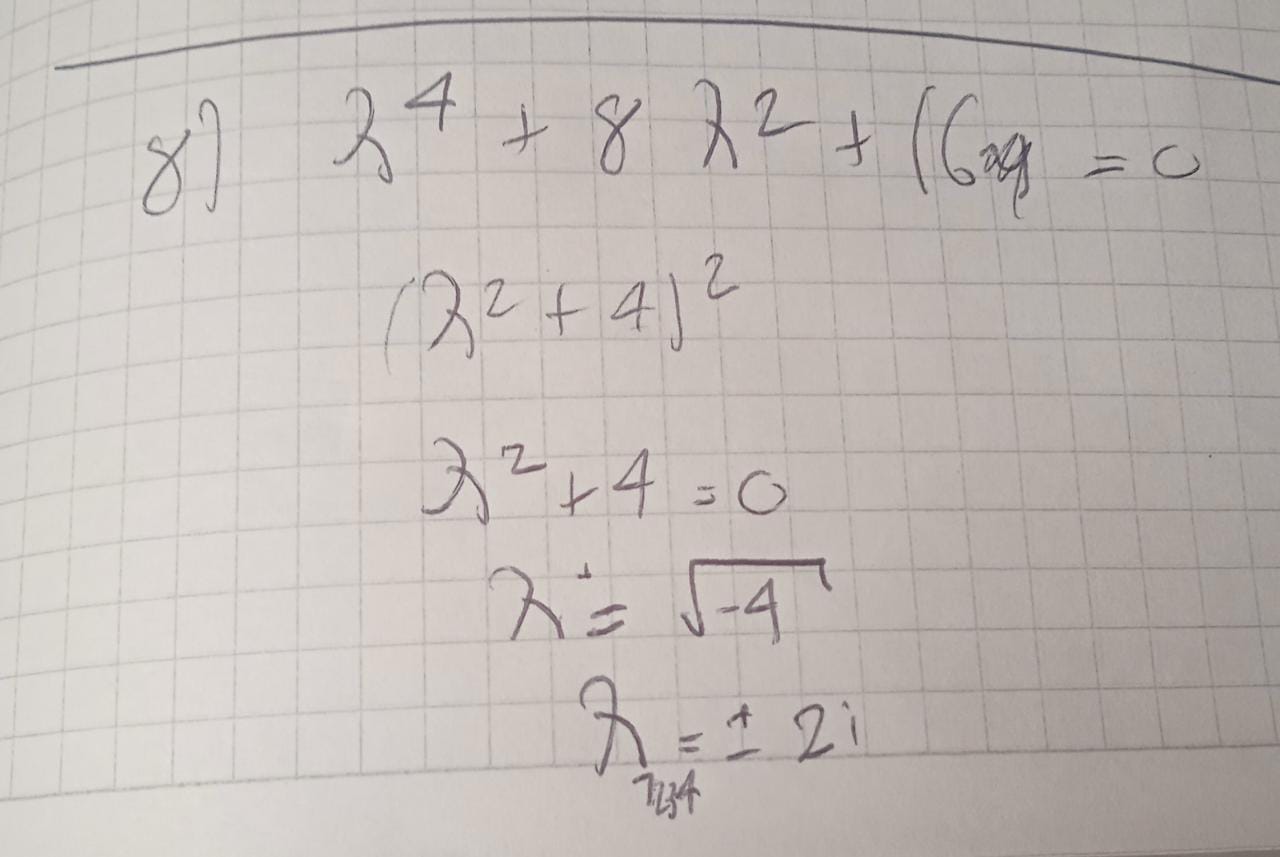 8) λ⁴ + 8 λ² + 16 = 0
(λ² + 4)²
λ² + 4 = 0
λ ± = √-4
λ₁₂₃₄ = ± 2i